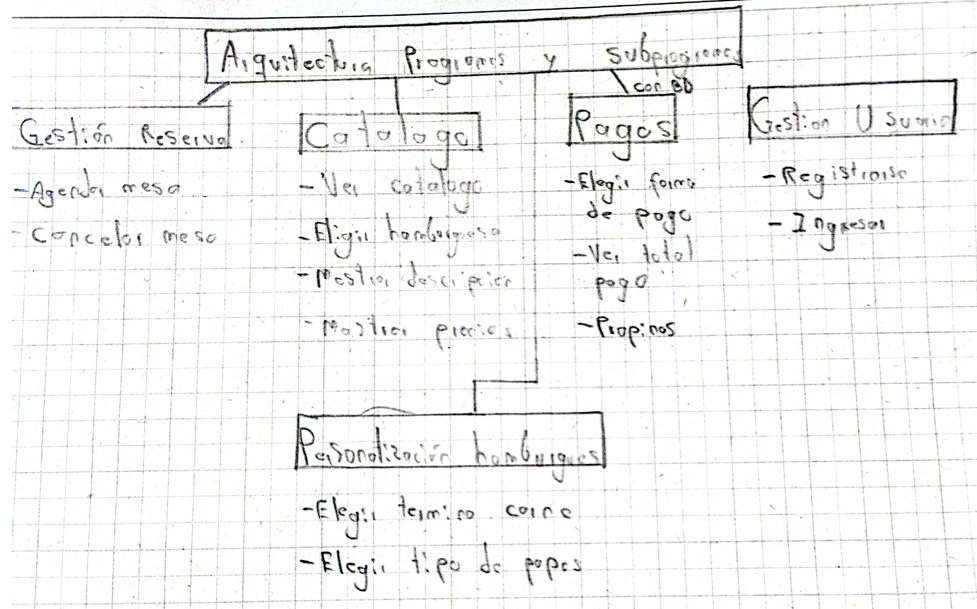 Arquitectura Programas y subprogramas
con BD
Gestión Reserva
- Agendar mesa
- Cancelar mesa
Catalogo
- Ver catalogo
- Eligir hamburguesa
- Mostrar descripción
- Mostrar precios
Pagos
- Elegir forma
de pago
- Ver total
pago
- Propinas
Gestion Usuario
- Registrarse
- Ingresar
Personalización hamburgues
- Elegir termino carne
- Elegir tipo de papas